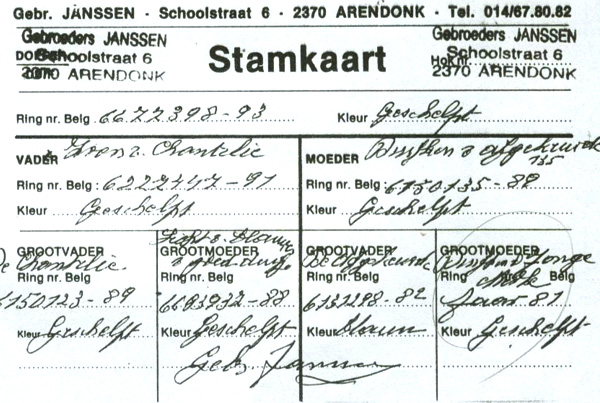 Gebr. JANSSEN · Schoolstraat 6 · 2370 ARENDONK · Tel. 014/67.80.82
Gebroeders JANSSEN
Schoolstraat 6
2370 ARENDONK
Stamkaart
Gebroeders JANSSEN
Schoolstraat 6
Hok nr.
2370 ARENDONK
Ring nr. Belg. 6622398-93 Kleur Geschelpt
VADER Zoon v. Chantilie
Ring nr. Belg: 6222447-91
Kleur Geschelpt
MOEDER
135
Ring nr. Belg: 6150135-89
Kleur Geschelpt
GROOTVADER
De Chantilie
6150123-89
Kleur Geschelpt
GROOTMOEDER
Ring nr. Belg
6693932-88
Kleur Geschelpt
GROOTVADER
Ring nr. Belg
Kleur Blauw
GROOTMOEDER
Ring nr. Belg
Jaar 81
Kleur Geschelpt
Gebr. Janssen